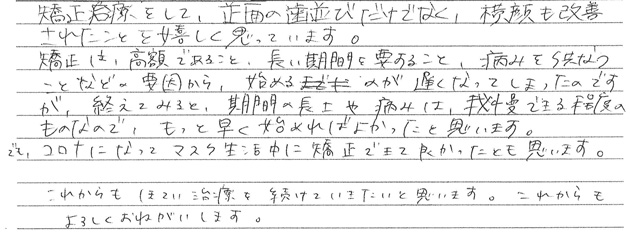 矯正治療をして、正面の歯並びだけでなく、横顔も改善
されたことを嬉しく思っています。
矯正は、高額であること、長い期間を要すること、痛みを伴なう
ことなどの要因から、始めるのが遅くなってしまったのです
が、終えてみると、期間の長さや痛みは、我慢できる程度の
ものなので、もっと早く始めればよかったと思います。
でも、コロナになってマスク生活中に矯正できて良かったとも思います。
これからも 治療を続けていきたいと思います。これからも
よろしくおねがいします。